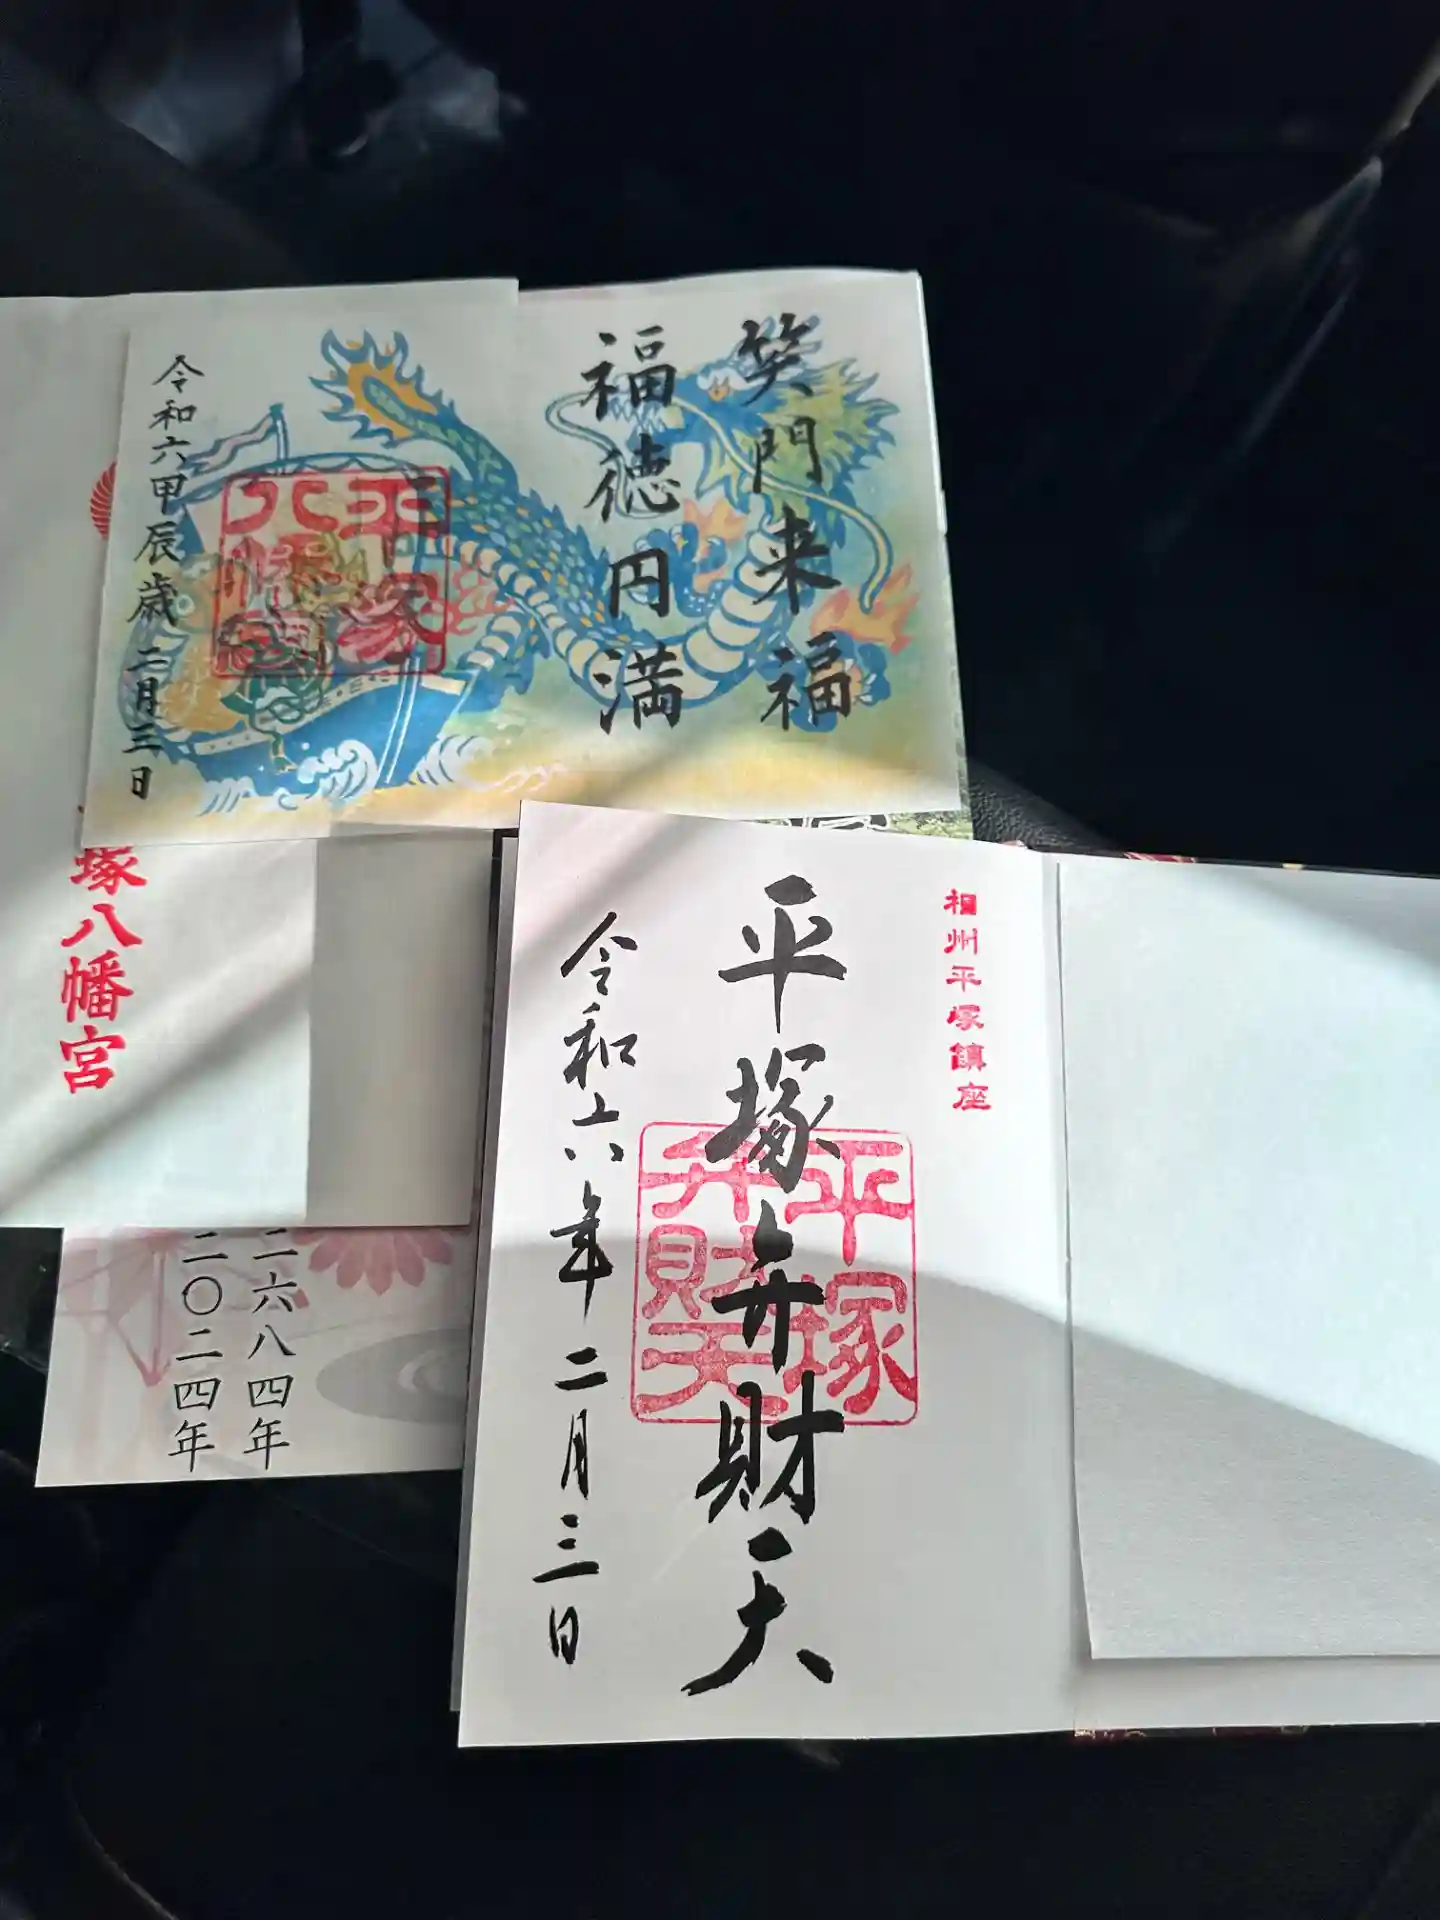 笑門来福
福徳円満
令和六甲辰歳二月三日
平塚
八幡
塚八幡宮
二六八四年
二〇二四年
相州平塚鎮座
平塚弁財天
平塚
弁財天
令和六年二月三日